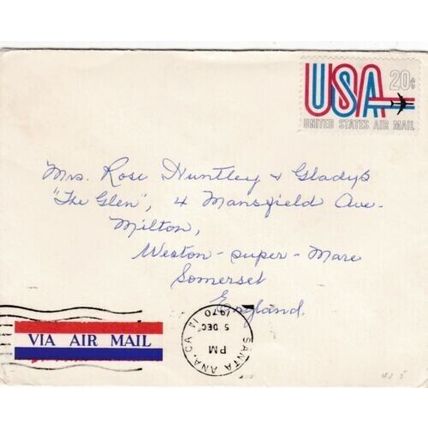 USA 20c
UNITED STATES AIR MAIL
Mrs. Rose Huntley & Gladys
"The Glen", 4 Mansfield Ave.
Milton,
Weston-super-Mare
Somerset
England.
VIA AIR MAIL
SANTA ANA, CA
PM
5 DEC
1970